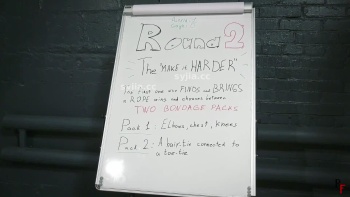 Round 2
The "MAKE it HARDER"
The first one who FINDS and BRINGS
a ROPE wins and chooses between
TWO BONDAGE PACKS
Pack 1: Elbows, chest, knees
Pack 2: A hair-tie connected to
a toe-tie